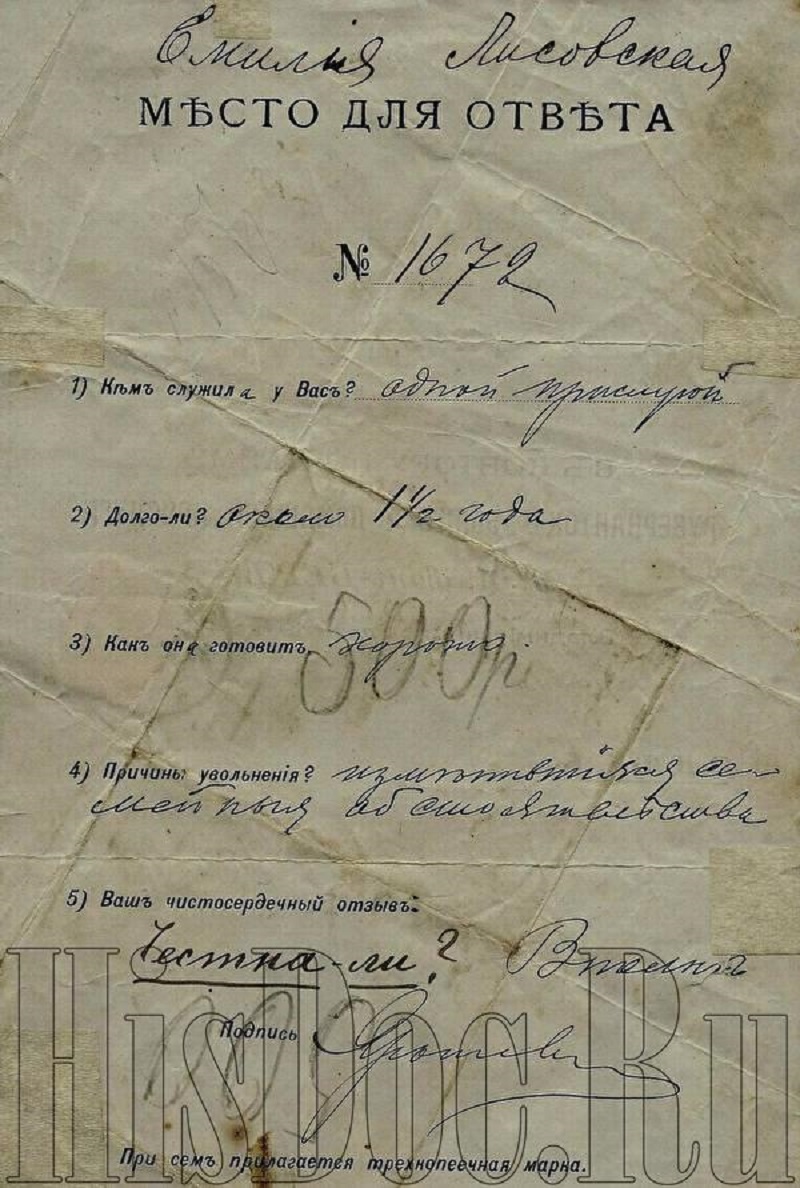 Емилія Лисовская
МѢСТО ДЛЯ ОТВѢТА
№ 1672
1) Кѣмъ служила у Васъ? одной прислугой
2) Долго-ли? около 1 1/2 года
3) Какъ она готовитъ хорошо.
500р
4) Причины увольненія? измѣнившіяся се-
мейныя обстоятельства
5) Вашъ чистосердечный отзывъ:
Честна-ли? Вполнѣ
Подпись
При семъ прилагается трехкопеечная марка.
HisDoc.Ru